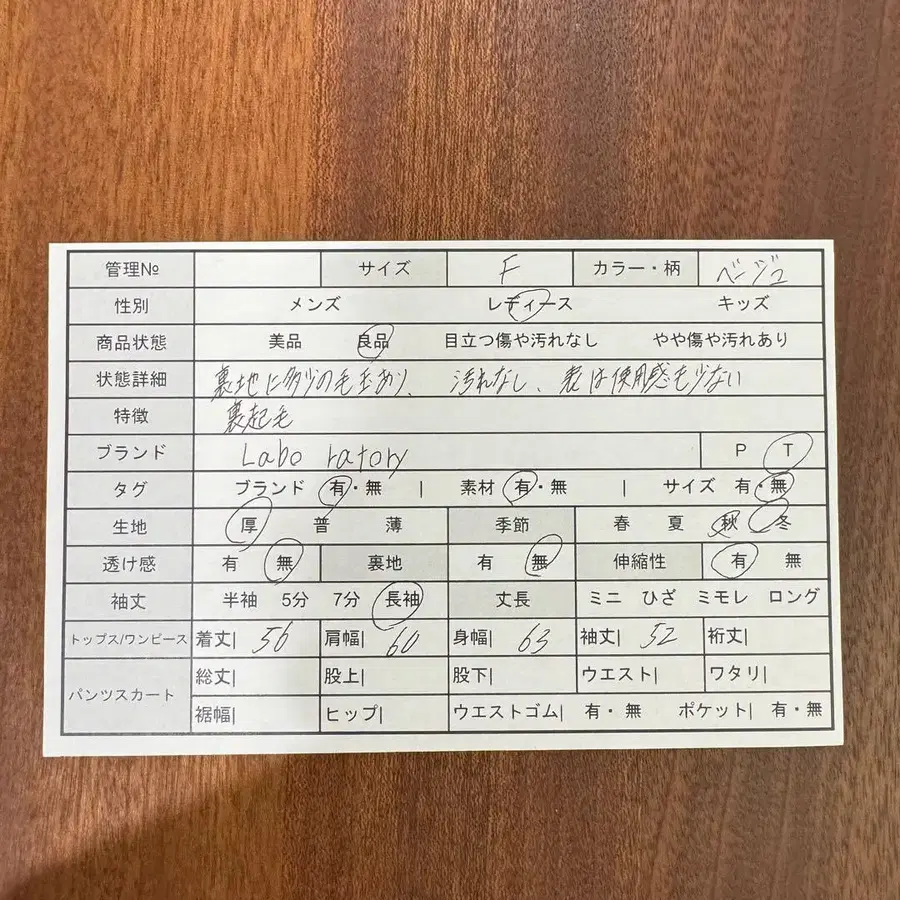 管理№ サイズ F カラー・柄 ベージュ
性別 メンズ レディース キッズ
商品状態 美品 良品 目立つ傷や汚れなし やや傷や汚れあり
状態詳細 裏地に多少の毛玉あり、汚れなし、表は使用感も少ない
特徴 裏起毛
ブランド Labo ratory P T
タグ ブランド 有・無 | 素材 有・無 | サイズ 有・無
生地 厚 普 薄 季節 春 夏 秋 冬
透け感 有 無 裏地 有 無 伸縮性 有 無
袖丈 半袖 5分 7分 長袖 丈長 ミニ ひざ ミモレ ロング
トップス/ワンピース 着丈| 56 肩幅| 60 身幅| 63 袖丈| 52 裄丈|
パンツスカート 総丈| 股上| 股下| ウエスト| ワタリ|
裾幅| ヒップ| ウエストゴム| 有・無 ポケット| 有・無